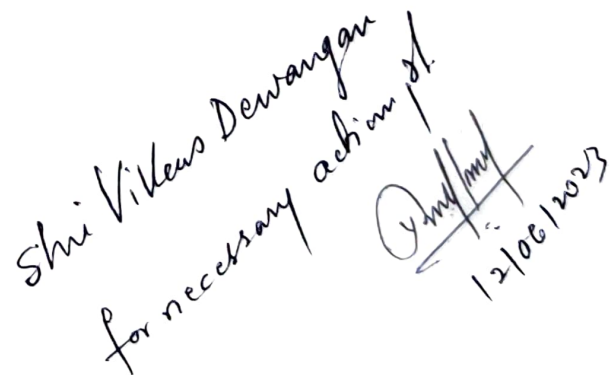 Shri Vikas Dewangan
for necessary action pl.
12/06/2023